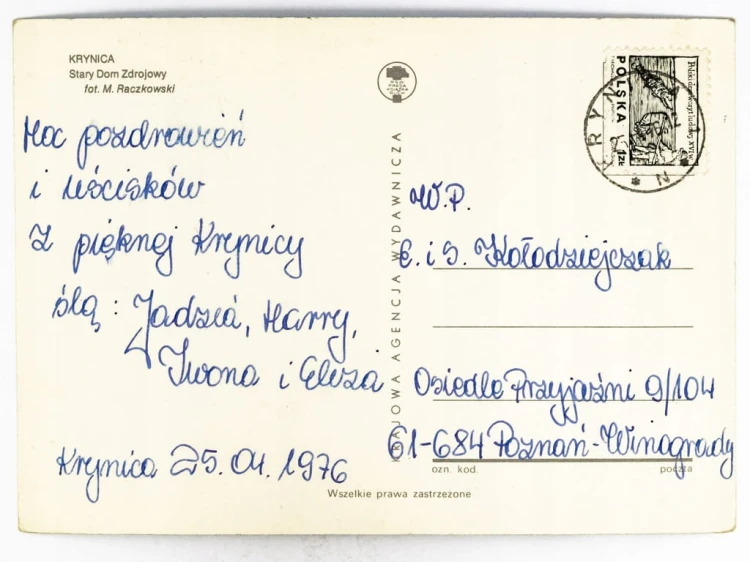 KRYNICA
Stary Dom Zdrojowy
fot. M. Raczkowski
Moc pozdrowień
i uścisków
z pięknej Krynicy
ślą: Jadzia, Harry,
Iwona i Eliza
Krynica 25.01.1976
KRAJOWA AGENCJA WYDAWNICZA
POLSKA
1 ZŁ
KRYN
W.P.
E. i S. Kołodziejczak
Osiedle Przyjaźni 9/104
61-684 Poznań-Winogrady
ozn. kod.
poczta
Wszelkie prawa zastrzeżone